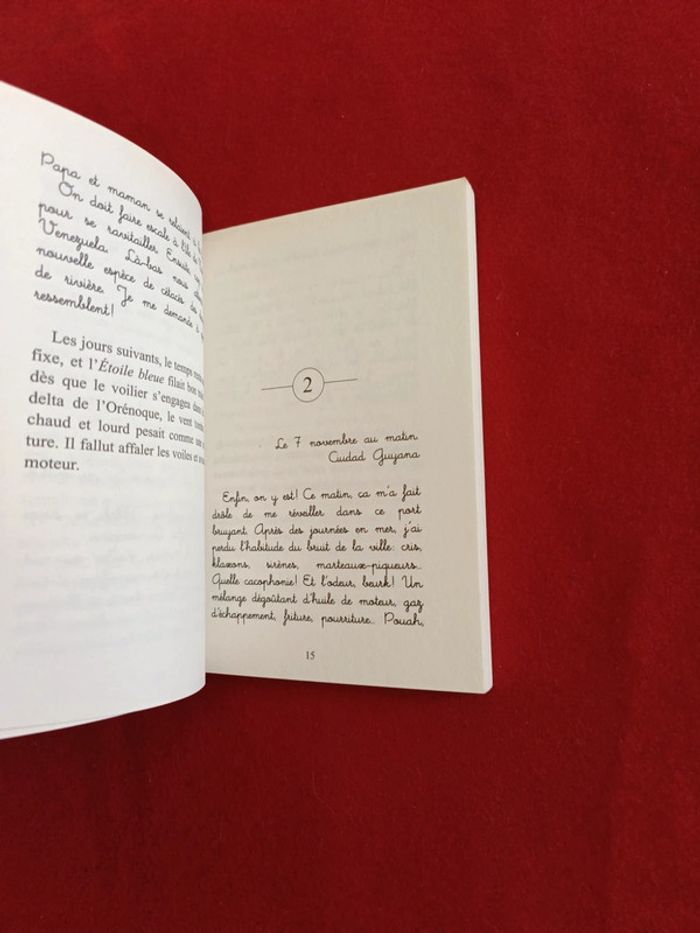 Papa et maman se relaient à
On doit faire escale à l'île de
pour se ravitailler. Ensuite
Venezuela. Là-bas nous
nouvelle espèce de cétacés
de rivière. Je me demande à
ressemblent!
Les jours suivants, le temps
fixe, et l'Étoile bleue filait bon
dès que le voilier s'engagea
delta de l'Orénoque, le vent
chaud et lourd pesait comme une
ture. Il fallut affaler les voiles et
moteur.
2
Le 7 novembre au matin
Ciudad Guyana
Enfin, on y est! Ce matin, ça m'a fait
drôle de me réveiller dans ce port
bruyant. Après des journées en mer, j'ai
perdu l'habitude du bruit de la ville: cris,
klaxons, sirènes, marteaux-piqueurs...
Quelle cacophonie! Et l'odeur, beurk! Un
mélange dégoûtant d'huile de moteur, gaz
d'échappement, friture, pourriture... Pouah,
15